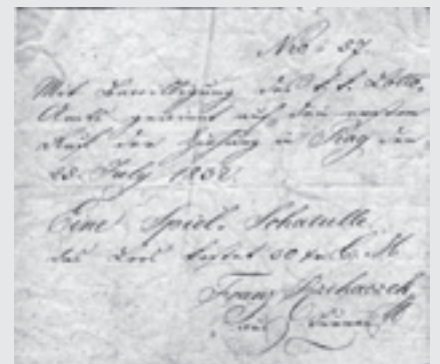 Nro: 37.
Mit Bewilligung des k. k. Lotto-
Amts gewinnt auf den ersten
Ruf der Ziehung in Prag den
28. July 1852.
Eine Spiel-Schatulle
das Loos kostet 20 xr C. M.
Franz Rzehaczek
aus